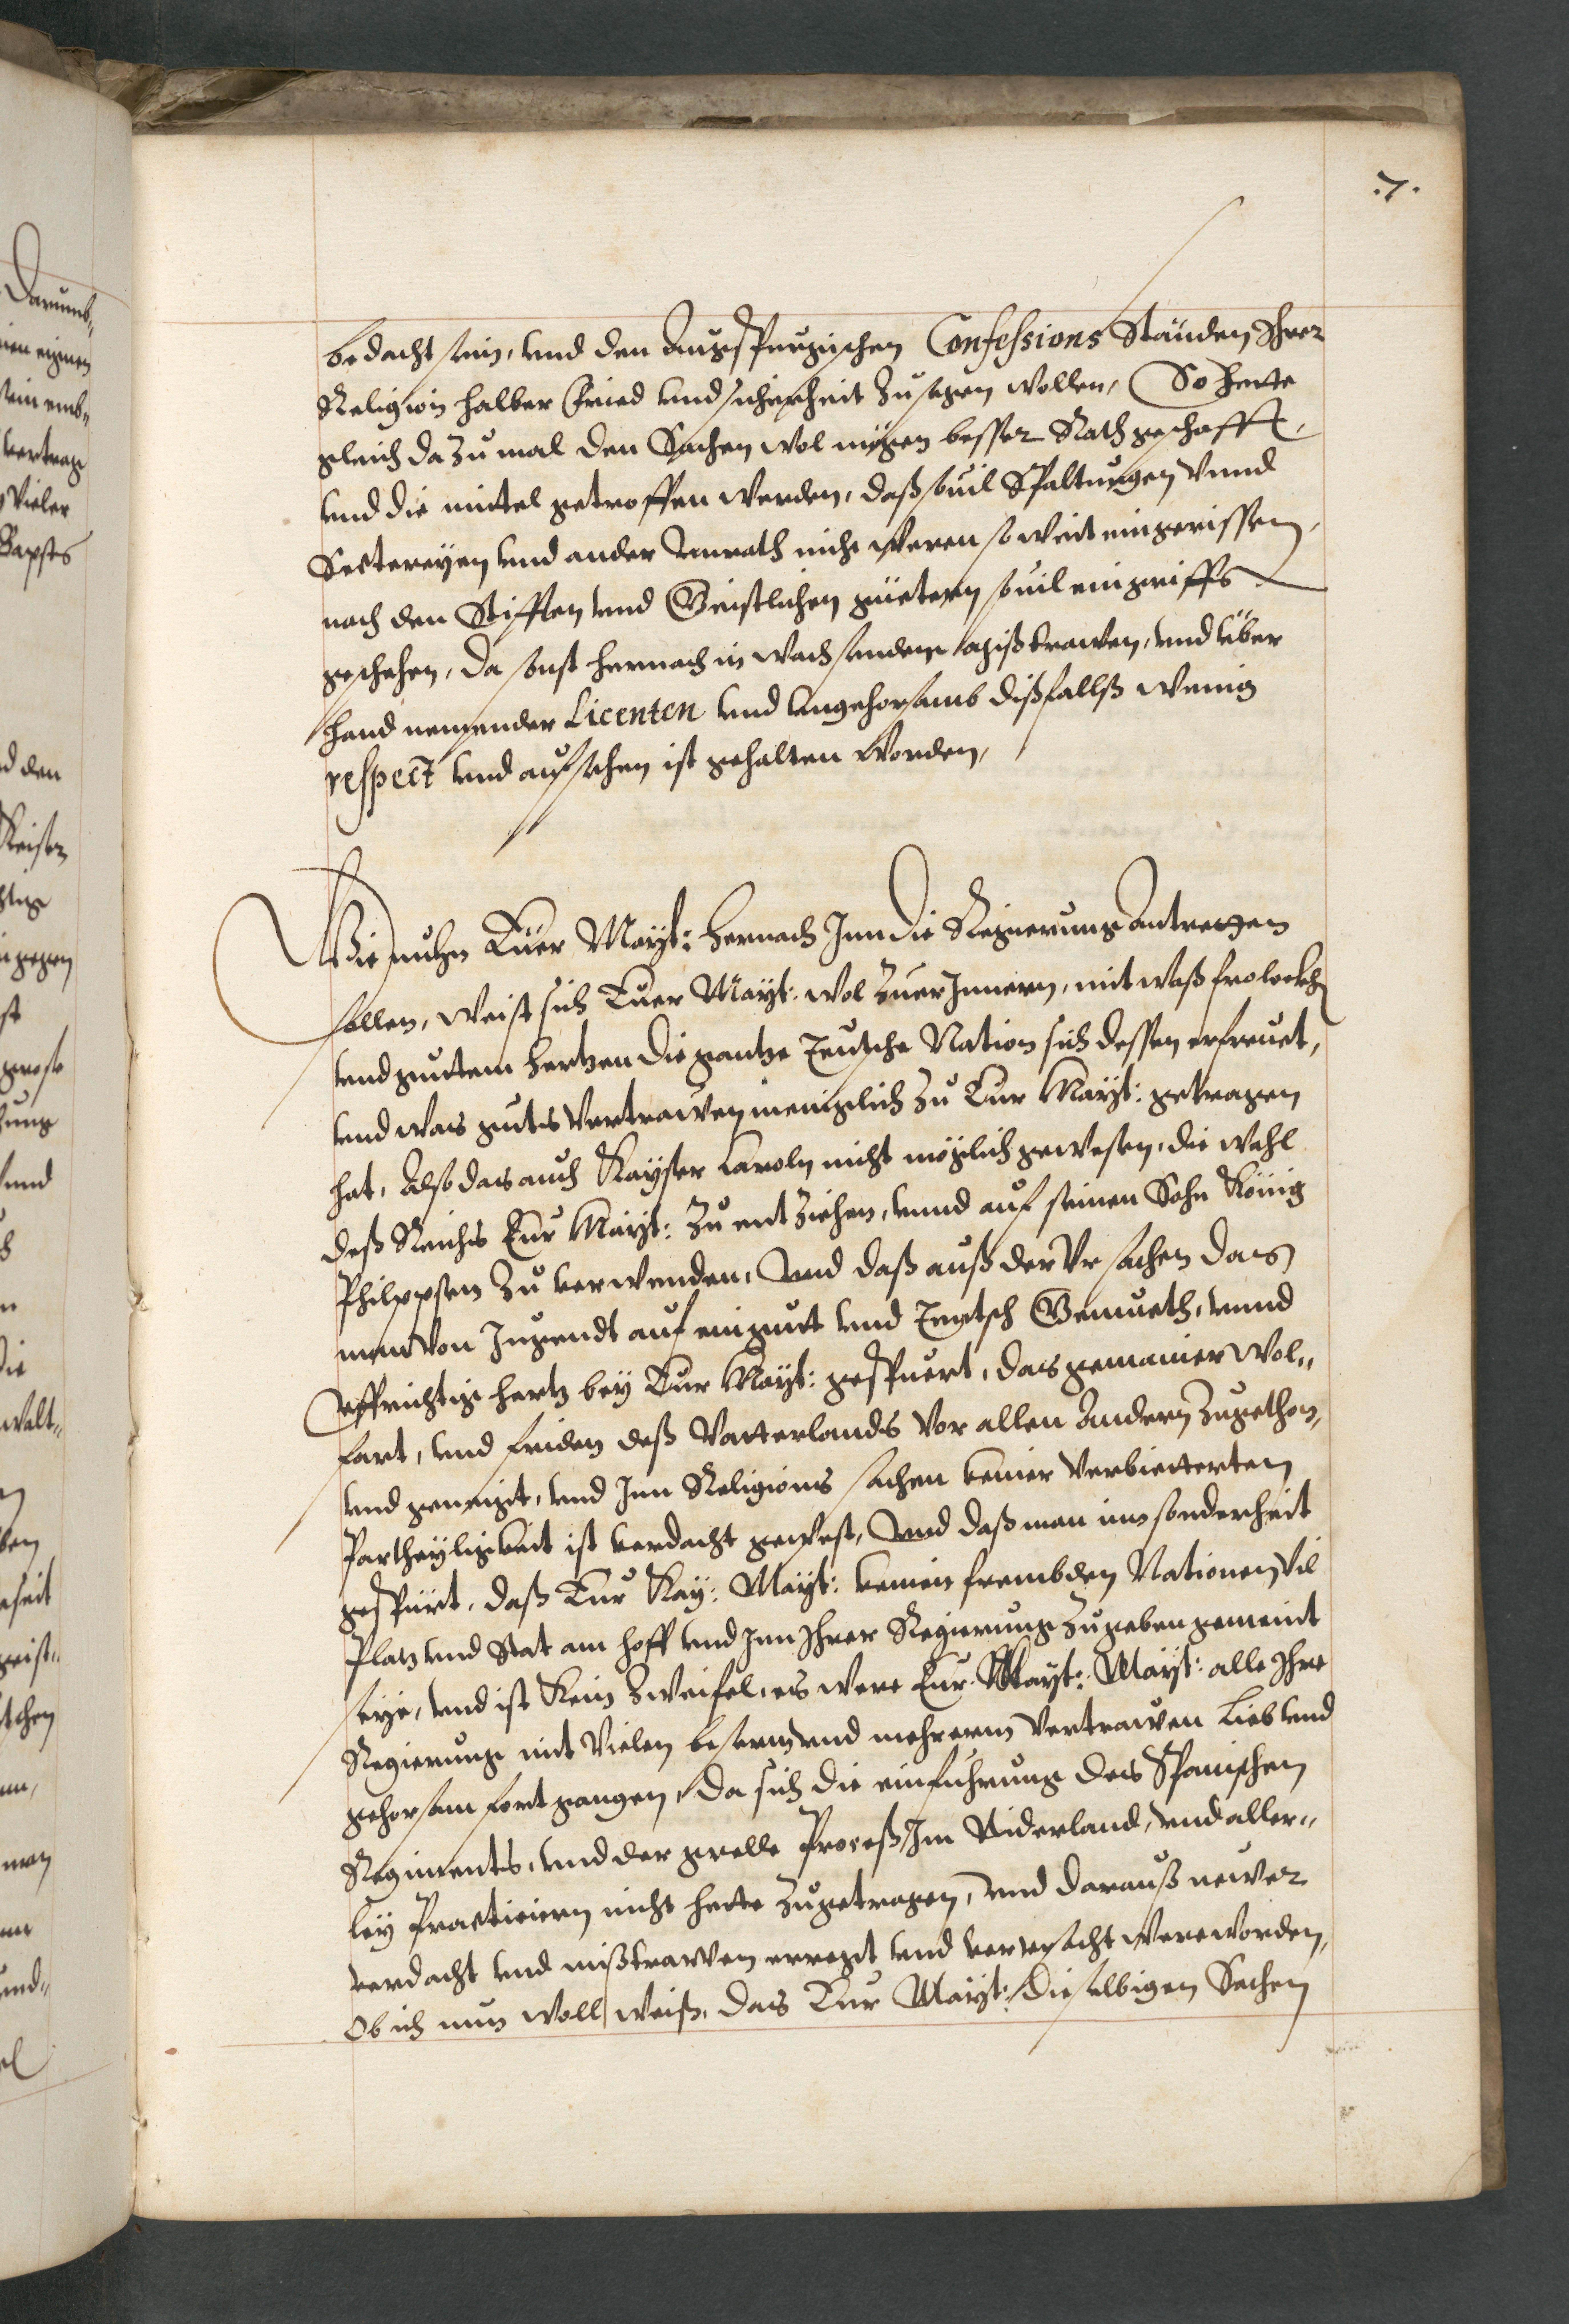 .7.
bedacht sein, vnd den Augspurgischen Confessions Ständen Ihrer
Religion halber Fried vnd sicherheit zusagen wollen, So hette
gleich dazumal den Sachen wol mögen besser Rath geschafft,
vnd die mittel getroffen werden, daß souil Spaltungen vnnd
Sectereyen vnd ander vnrath nicht weren so weit eingerissen,
noch den Stifften vnd Geistlichen güetern souil eingriffs
geschehen, da sonst hernach in wachsendem mißtrawen, vnd über
hand nemender Licenten vnd vngehorsamb dißfallß wenig
respect vnd aufsehen ist gehalten worden,
Wie nuhn Euer Mayt: hernach Inn die Regierung antretten
sollen, weist sich Euer Mayt: wol zuerInnern, mit waß frolocken
vnd guttem hertzen die gantze Teutsche Nation sich dessen erfreuet,
vnd was gutes vertrawen meniglich zu Eur Mayt: getragen
hat, Also das auch Kayser Caroln nicht möglich gewesen, die wahl
deß Reichs Eur Mayt: zu entziehen, vnnd auf seinen Sohn König
Philppsen zu verwenden, Vnd daß auß der Vrsachen das
man von Jugendt auf ein gutt vnd Teutsch Gemueth, vnnd
Auffrichtig hertz bey Eur Mayt: gespuert, das gemainer wol„
fart, vnd friden deß Vatterlands vor allen Andern zugethon,
vnd geneigt, vnd Inn Religions sachen keiner verbietterten
Partheyligkeit ist verdacht gewest, Vnd daß man inn sonderheit
gespürt, daß Eur Kay: Mayt: keinen frembden Nationen vil
Platz vnd Stat am hoff vnd Inn Ihrer Regierung zugeben gemeint
seye, vnd ist Kein zweifel, es were Eur. Mayt: Mayt: alle Ihre
Regierung mit vielen besserm vnd mehrerm vertrawen Lieb vnd
gehorsam fortgangen, da sich die einfuhrung des Spanischen
Regiments, vnd der grelle Proceß Im Niderland, vnd aller„
ley Practicirn nicht hette zugetragen, vnd darauß newer
verdacht vnd mißtrawen erregt vnd verursacht were worden,
Ob ich nun woll weiß, das Eur Mayt: dieselbigen Sachen